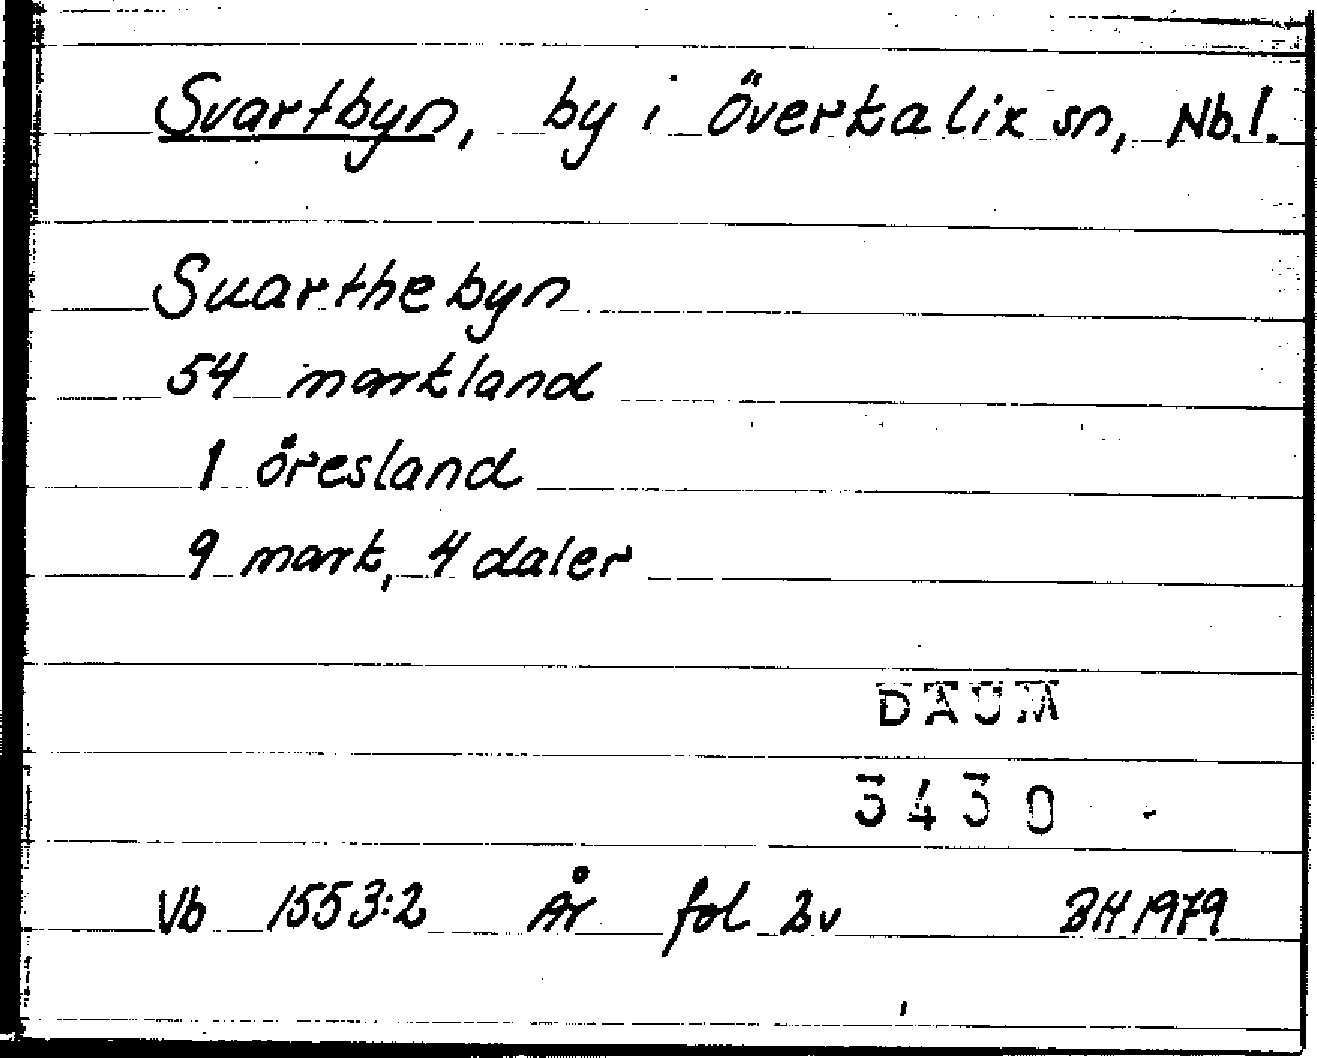 Svartbyn, by i Överkalix sn, Nb.l.
Suarthebyn
54 markland
1 öresland
9 mark, 4 daler
DAUM
3430
Vb 1553:2 År fol 2v BH 1979